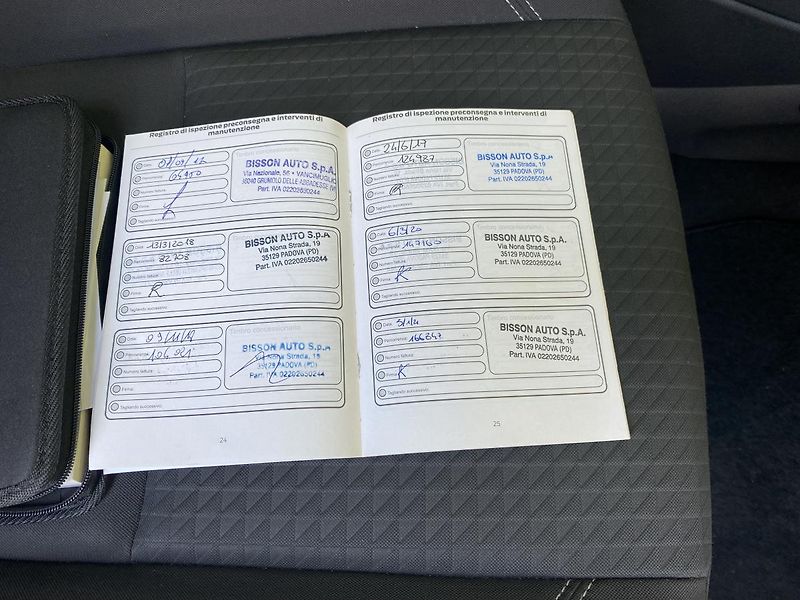 Registro di ispezione preconsegna e interventi di
manutenzione
Data:
Percorrenza:
Numero fattura:
Firma:
Tagliando successivo:
BISSON AUTO S.p.A.
Via Nazionale, 56 • VANCIMUGLIO
36040 GRUMOLO DELLE ABBADESSE (VI)
Part. IVA 02202650244
Data: 13/3/2018
Percorrenza: 82708
Numero fattura:
Firma: R
Tagliando successivo:
BISSON AUTO S.p.A.
Via Nona Strada, 19
35129 PADOVA (PD)
Part. IVA 02202650244
Data:
Percorrenza:
Numero fattura:
Firma:
Tagliando successivo:
Timbro concessionario
BISSON AUTO S.p.A.
Via Nona Strada, 19
35129 PADOVA (PD)
Part. IVA 02202650244
24
Registro di ispezione preconsegna e interventi di
manutenzione
Data:
Percorrenza: 124987
Numero fattura:
Firma: R
Tagliando successivo:
BISSON AUTO S.p.A.
Via Nona Strada, 19
35129 PADOVA (PD)
Part. IVA 02202650244
Data: 6/3/20
Percorrenza: 147160
Numero fattura:
Firma: R
Tagliando successivo:
BISSON AUTO S.p.A.
Via Nona Strada, 19
35129 PADOVA (PD)
Part. IVA 02202650244
Data:
Percorrenza: 166347
Numero fattura:
Firma: R
Tagliando successivo:
BISSON AUTO S.p.A.
Via Nona Strada, 19
35129 PADOVA (PD)
Part. IVA 02202650244
25